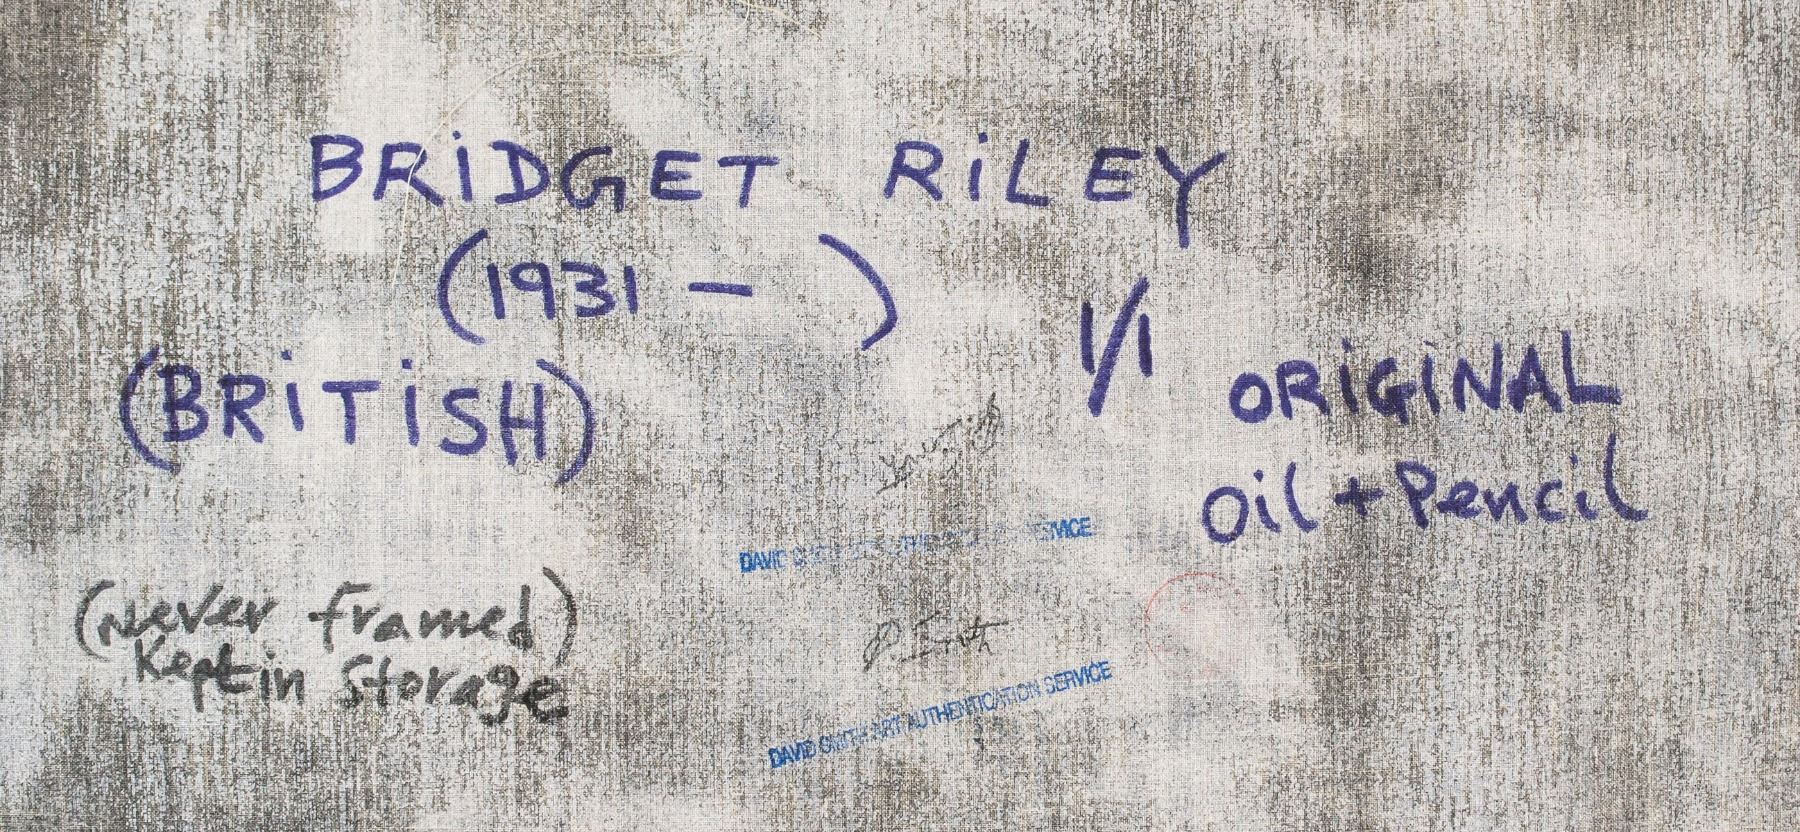 BRiDGET RiLEY
(1931 - )
1/1
(BRiTiSH)
ORiGiNAL
Oil + Pencil
DAVID SMITH ART AUTHENTICATION SERVICE
(Never framed)
Kept in Storage
D. Smith
DAVID SMITH ART AUTHENTICATION SERVICE